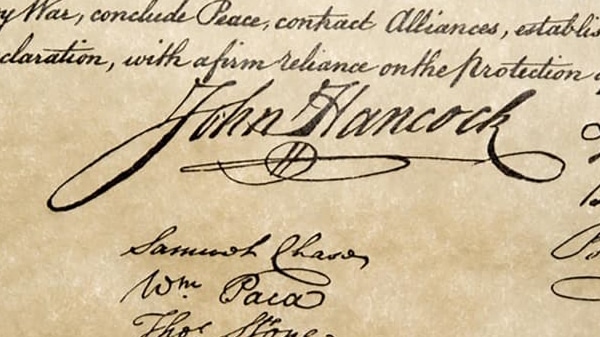 War, conclude Peace, contract Alliances, establis
claration, with a firm reliance on the protection
John Hancock
Samuel Chase
Wm Paca
Thos Stone